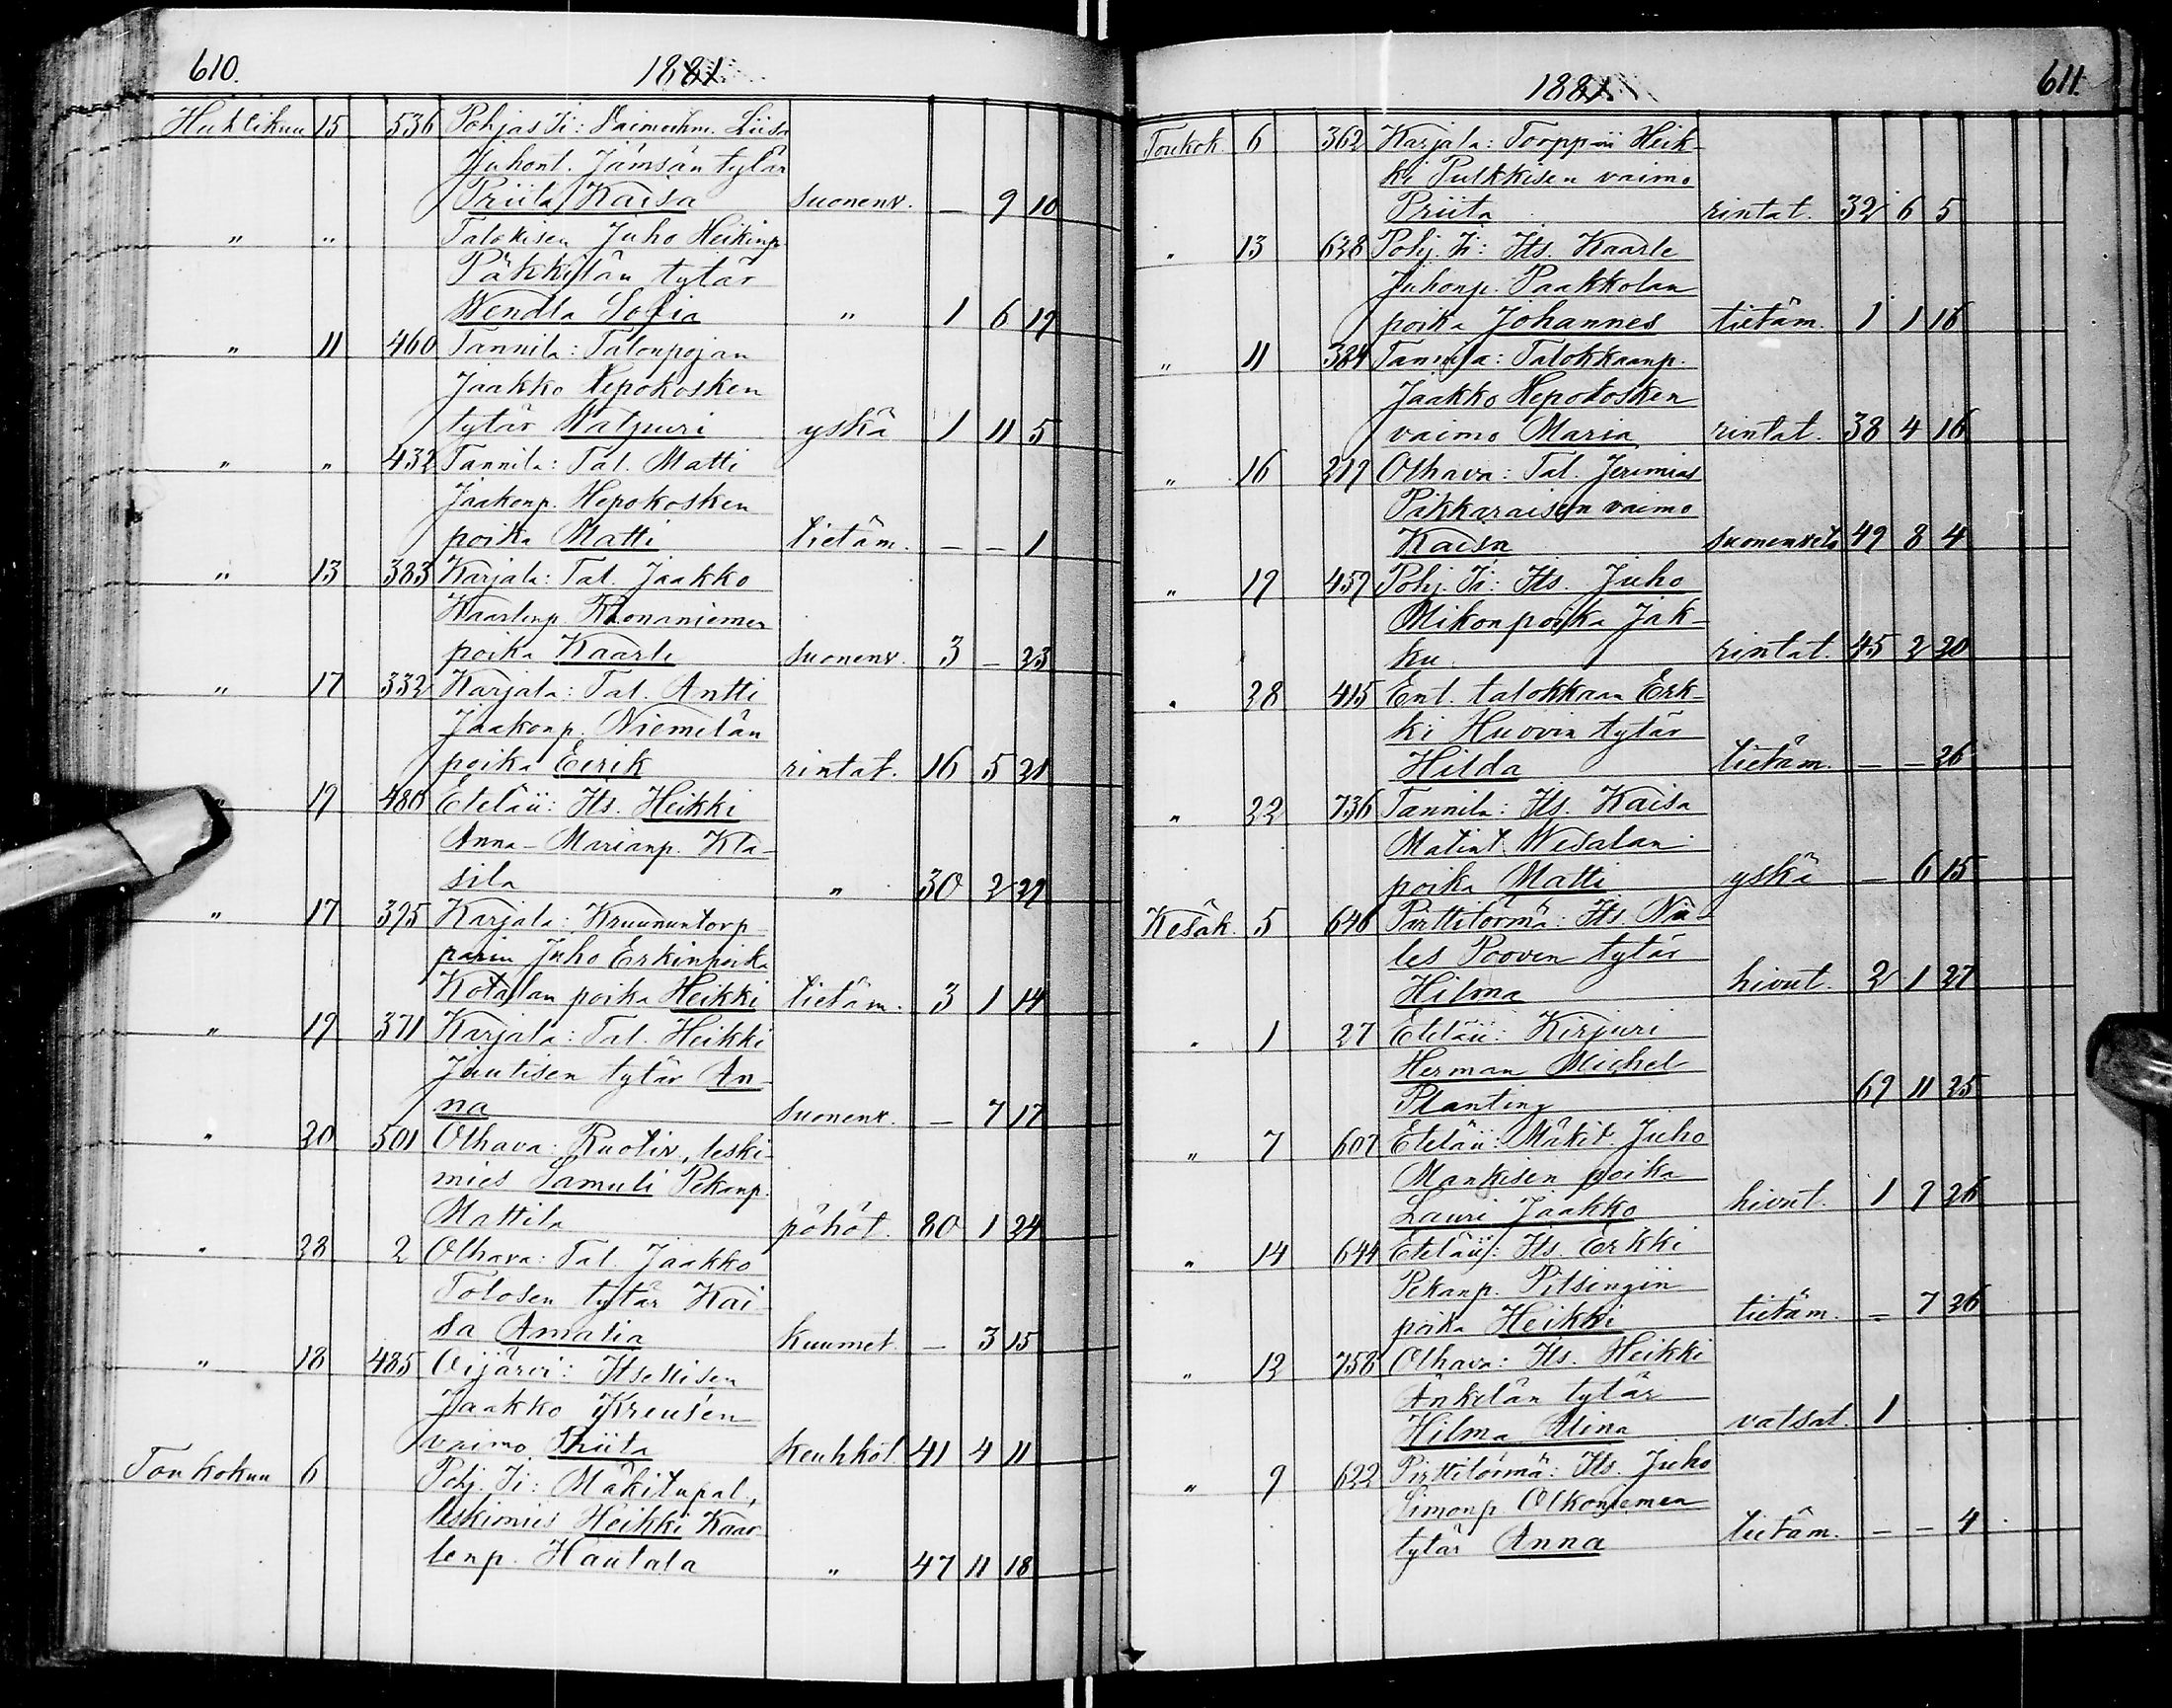 610.
1881
Huhtikuu 15 536 Pohjas Ii: Vaimoihm. Liisa
Juhont. Jämsän tytär
Priita Kaisa suonenv. — 9 10
" " Talokisen Juho Heikinp.
Päkkilän tytär
Wendla Sofia " 1 6 19
" 11 460 Tannila: Talonpojan
Jaakko Hepokosken
tytär Walpuri yskä 1 11 5
" " 432 Tannila: Tal. Matti
Jaakonp. Hepokosken
poika Matti tietäm. — — 1
" 13 383 Karjala: Tal. Jaakko
Kaarlenp.
poika Kaarle suonenv. 3 — 23
" 17 332 Karjala: Tal. Antti
Jaakonp. Niemelän
poika Eerik rintat. 16 5 21
" 19 480 Eteläii: Its. Heikki
Anna-Marianp. Kla-
sila " 30 2 29
" 17 395 Karjala: Kruununtorp-
parin Juho Erkinpoika
Kotajan poika Heikki tietäm. 3 1 14
" 19 371 Karjala: Tal. Heikki
Juutisen tytär An-
na suonenv. — 7 17
" 20 501 Olhava: Ruotiv., leski-
mies Samuli Pekanp.
Mattila pöhöt. 80 1 24
" 28 2 Olhava: Tal. Jaakko
Tolosen tytär Kai-
sa Amalia kuumet. — 3 15
" 18 485 Oijärvi: Itsellisen
Jaakko Kreusen
vaimo Priita keuhkot. 41 4 11
Toukokuu 6 Pohj. Ii: Mäkitupal.,
leskimies Heikki Kaar-
lenp. Hautala " 47 11 18
1881
611.
Toukok. 6 362 Karjala: Torppari Heik-
ki Pulkkisen vaimo
Priita rintat. 32 6 5
" 13 628 Pohj. Ii: Its. Kaarle
Juhonp. Paakkolan
poika Johannes tietäm. 1 1 16
" 11 384 Tannila: Talokkaanp.
Jaakko Hepokosken
vaimo Maria rintat. 38 4 16
" 16 219 Olhava: Tal. Jeremias
Pakkaraisen vaimo
Kaisa suonenveto 49 8 4
" 19 459 Pohj. Ii: Its. Juho
Mikonpoika Jak-
ku rintat. 45 2 20
" 28 415 Ent. talokkaan Erk-
ki Huovin tytär
Hilda tietäm. — — 26
" 22 736 Tannila: Its. Kaisa
Matint. Wesalan
poika Matti yskä — 6 15
Kesäk. 5 646 Pirttitörmä: Its. Nii-
les Pooven tytär
Hilma hivut. 2 1 27
" 1 27 Eteläii: Kirjuri
Herman Michel
Planting 69 11 25
" 7 607 Eteläii: Mäkit. Juho
Mankisen poika
Lauri Jaakko hivut. 1 9 26
" 14 644 Eteläii: Its. Erkki
Pekanp. Pitsingin
poika Heikki tietäm. — 7 26
" 12 758 Olhava: Its. Heikki
Ankelän tytär
Hilma Alina vatsat. 1
" 9 622 Pirttitörmä: Its. Juho
Simonp. Olkoniemen
tytär Anna tietäm. — — 4